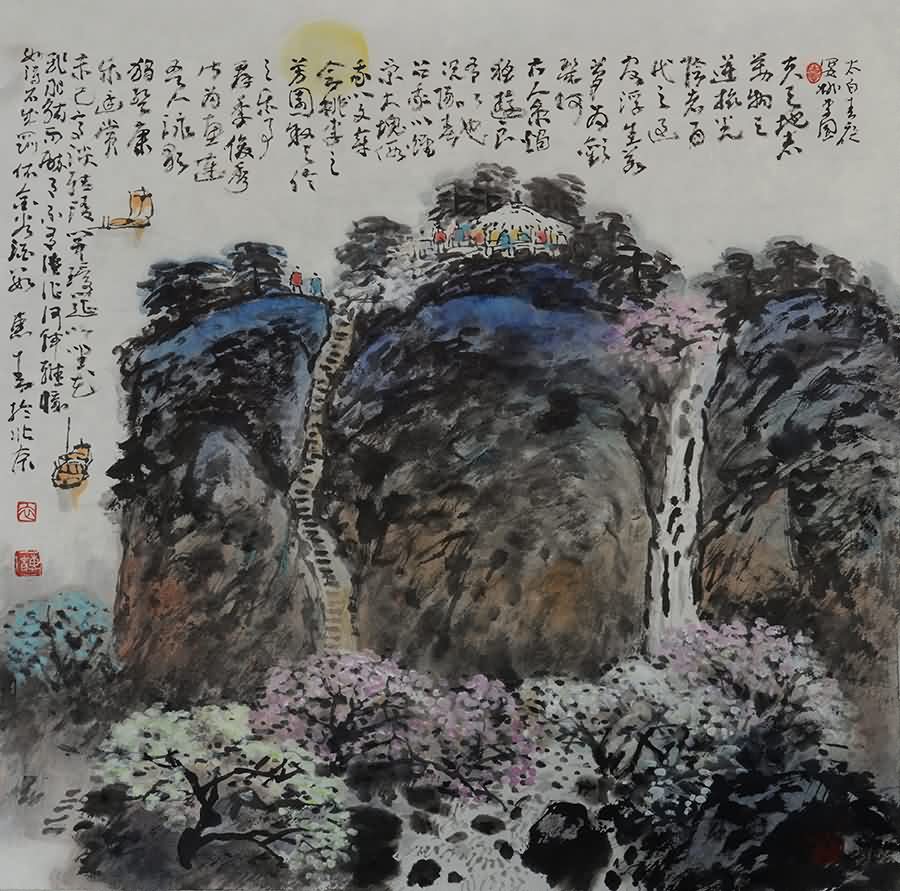 太白春夜
宴桃李園
夫天地者
萬物之
逆旅光
陰者百
代之過
客浮生若
夢為歡
幾何
古人秉燭
夜遊良
有以也
況陽春
召我以煙
景大塊假
我以文章
會桃李之
芳園敘天倫
之樂事
群季俊秀
皆為惠連
吾人詠歌
獨慚康
樂幽賞
未已高談轉清開瓊筵以坐花
飛羽觴而醉月不有佳作何伸雅懷
如詩不成罰依金谷酒數 於北京